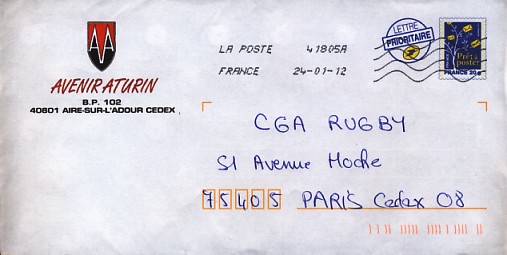 AA
LETTRE
PRIORITAIRE
LA POSTE 41805A
FRANCE 24-01-12
Prêt à
poster
FRANCE 20g
AVENIR ATURIN
B.P. 102
40801 AIRE-SUR-L'ADOUR CEDEX
CGA RUGBY
51 Avenue Hoche
75405 PARIS Cedex 08